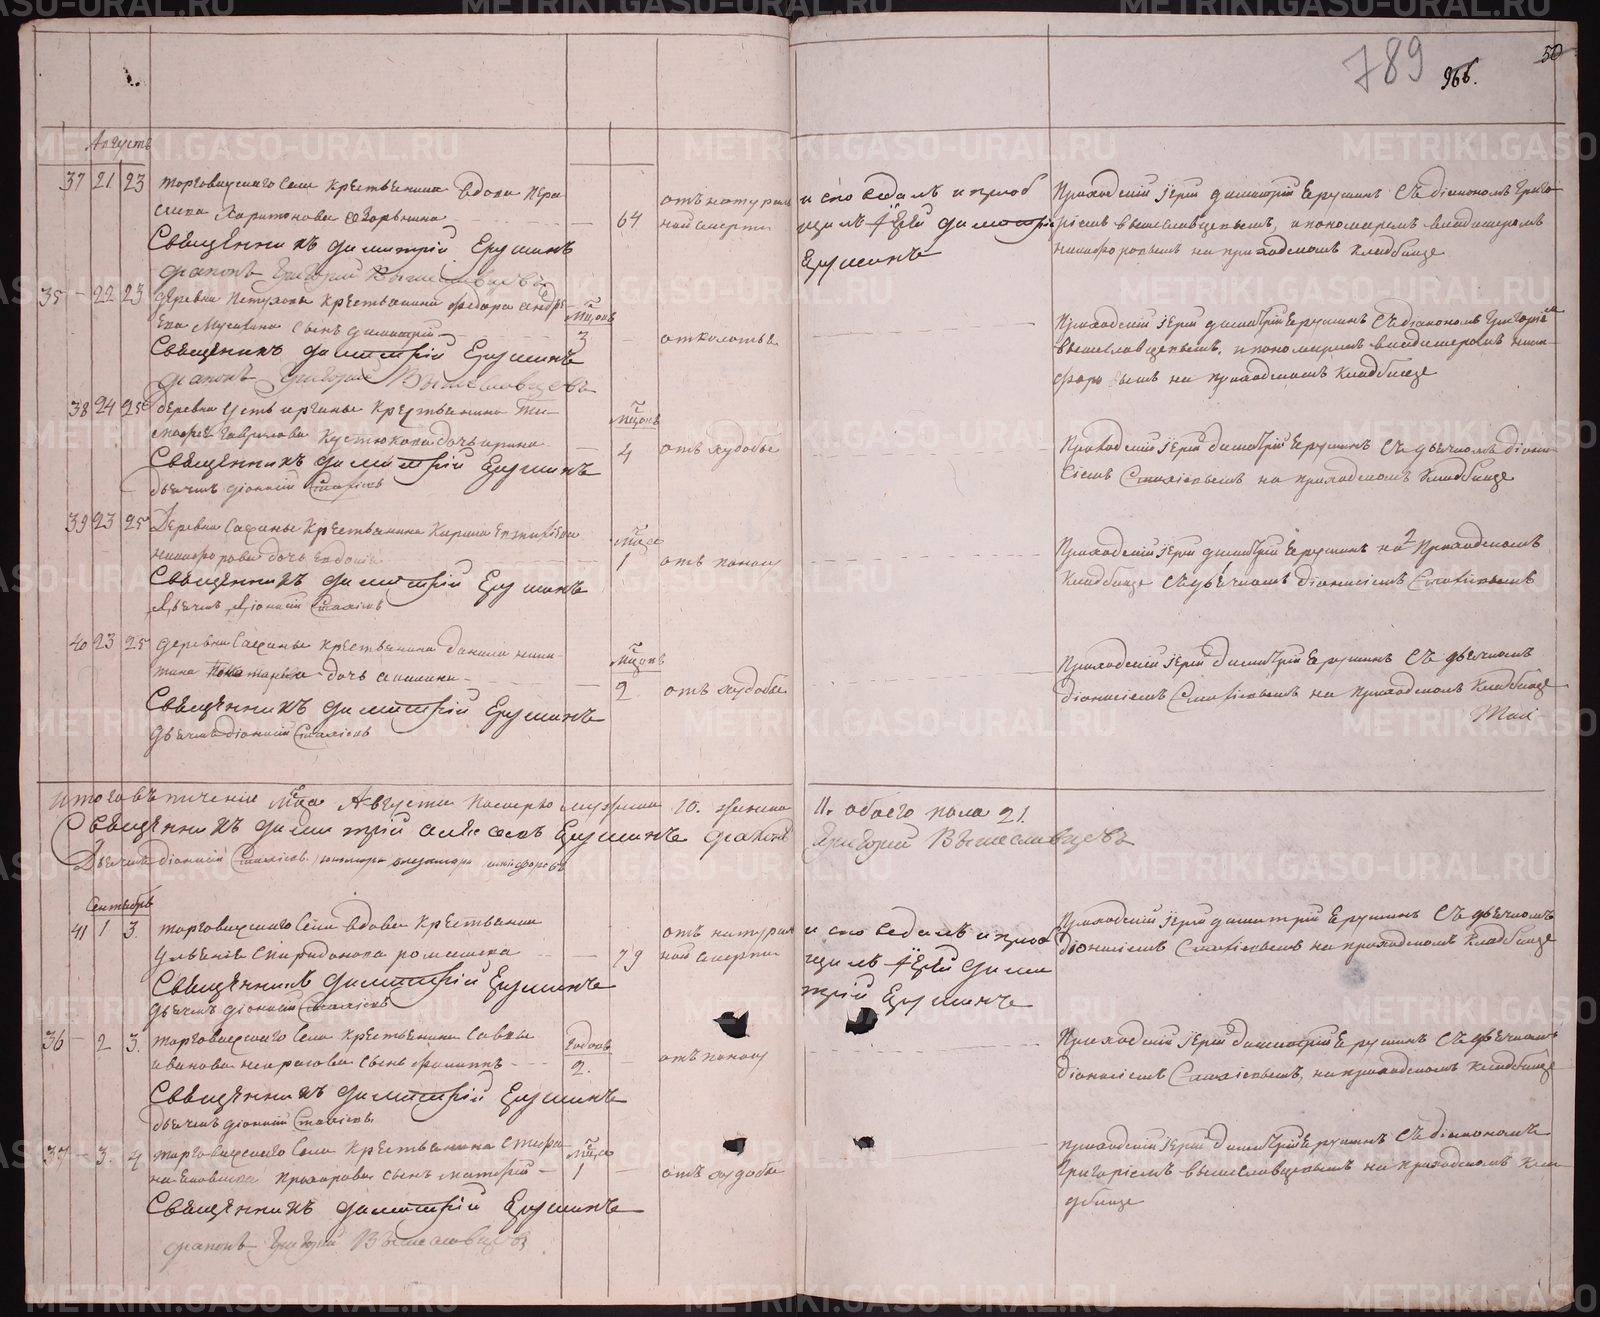 789
966.
50
Августъ
37 21 23 Торговижскаго Села Крестьянина вдова Пера
скева Харитонова 64 отъ натураль
ной смерти
и сповѣдалъ и приоб
щилъ Іерей Димитрій
Ерушинъ
Приходскій Іерей Димитрій Ерушинъ Съ діакономъ Григо
ріемъ Вышеславцевымъ, и пономаремъ Владимеромъ
Никифоровымъ на приходскомъ Кладбище
Священникъ Димитрій Ерушинъ
Диаконъ Григорій Вышеславцевъ
35 - 22 23 Деревни Петуховы Крестьянина Федора Андре
ева сынъ Димитрій мцовъ 3 - отколотья
Приходскій Іерей Димитрій Ерушинъ Съ діакономъ Григоріемъ
Вышеславцевымъ, и пономаремъ Владимеромъ Ники
форовымъ на приходскомъ Кладбище
Священникъ Димитрій Ерушинъ
Диаконъ Григорій Вышеславцевъ
38 24 25 Деревни Усть Крестьянина Ти
мофея Гаврилова дочь Ирина мцовъ 4 отъ худобы
Приходскій Іерей Димитрій Ерушинъ Съ дьячкомъ Діони
сіемъ на приходскомъ Кладбище
Священникъ Димитрій Ерушинъ
Дьячекъ Діонисій
39 23 25 Деревни Сажины Крестьянина Кирила
Никифорова дочь Евдокія мца 1 отъ поносу
Приходскій Іерей Димитрій Ерушинъ на Приходскомъ
Кладбище Съ дьячкомъ Діонисіемъ
Священникъ Димитрій Ерушинъ
Дьячекъ Діонисій
40 23 25 Деревни Сажины Крестьянина Данила Ники
тина дочь Акилина мцовъ 2 отъ худобы
Приходскій Іерей Димитрій Ерушинъ Съ дьячкомъ
Діонисіемъ на приходскомъ Кладбище
Священникъ Димитрій Ерушинъ
Дьячекъ Діонисій
Итого въ течение мца Августа померло мужеска 10. женска 11. обоего пола 21.
Священникъ Димитрій Ерушинъ Диаконъ Григорий Вышеславцевъ
Дьячекъ Діонисій пономарь Владимеръ Никифоровъ
Сентябрь
41 1 3. Торговижскаго Села вдова Крестьянка
Ульяния Спиридонова 79 отъ натураль
ной смерти
и сповѣдалъ и приоб
щилъ Іерей Дими
трій Ерушинъ
Приходскій Іерей Димитрій Ерушинъ Съ дьячкомъ
Діонисіемъ на приходскомъ Кладбище
Священникъ Димитрій Ерушинъ
Дьячекъ Діонисій
36 - 2 3. Торговижскаго Села Крестьянина Саввы
Иванова Некрасова сынъ Филиппъ годовъ 2. отъ поносу
Приходскій Іерей Димитрій Ерушинъ Съ дьячкомъ
Діонисіемъ на приходскомъ Кладбище
Священникъ Димитрій Ерушинъ
Дьячекъ Діонисій
37 - 3. 4 Торговижскаго Села Крестьянина Стефа
на Прохорова сынъ мца 1 - отъ худобы
Приходскій Іерей Димитрій Ерушинъ Съ діакономъ
Григоріемъ Вышеславцевымъ на приходскомъ Кла
дбище
Священникъ Димитрій Ерушинъ
Диаконъ Григорій Вышеславцевъ
METRIKI.GASO-URAL.RU